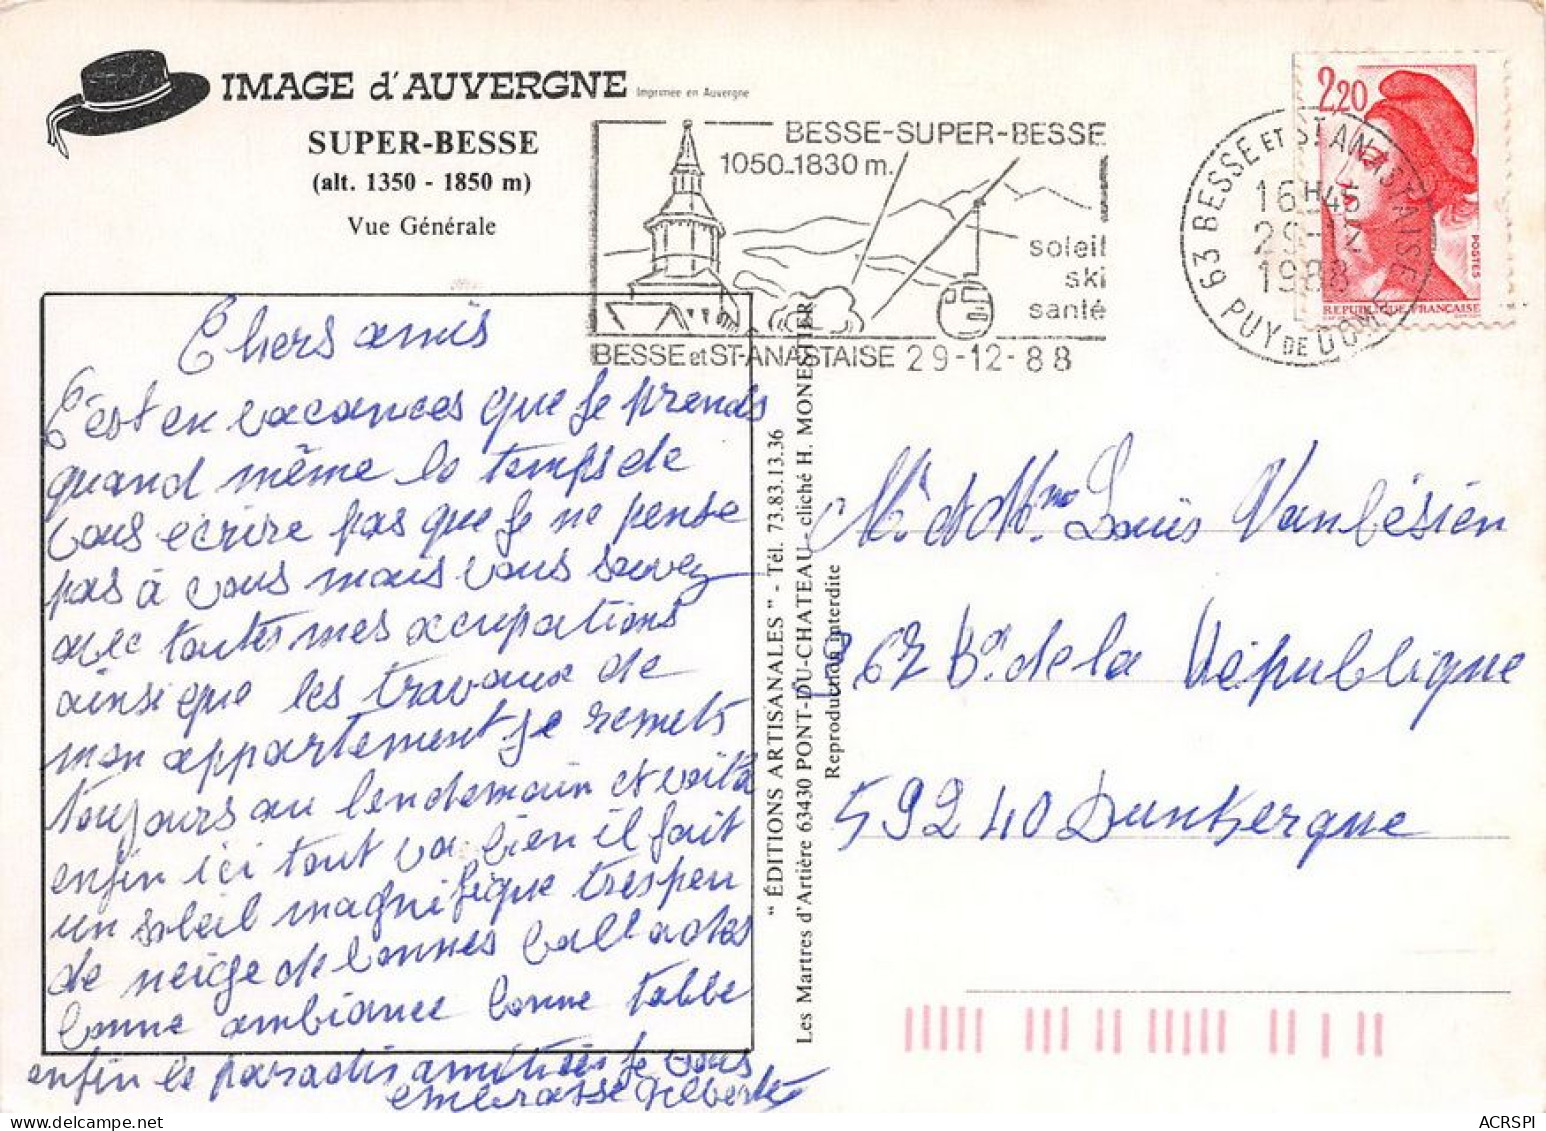 IMAGE d'AUVERGNE Imprimée en Auvergne
SUPER-BESSE
(alt. 1350 - 1850 m)
Vue Générale
BESSE-SUPER-BESSE
1050-1830 m.
soleil
ski
santé
BESSE et ST-ANASTAISE 29-12-88
63 BESSE ET ST ANASTAISE
16H45
29-12
1988
PUY DE DOME
2,20
POSTES
REPUBLIQUE FRANÇAISE
Chers amis
C'est en vacances que je prends
quand même le temps de
vous écrire pas que je ne pense
pas à vous mais vous savez
avec toutes mes occupations
ainsi que les travaux de
mon appartement je remets
toujours au lendemain et voilà
enfin ici tout va bien il fait
un soleil magnifique tres peu
de neige de bonnes ballades
bonne ambiance bonne table
enfin le paradis amitiés je vous
embrasse Gilberte
" ÉDITIONS ARTISANALES " - Tél. 73.83.13.36
Les Martres d'Artière 63430 PONT-DU-CHATEAU - cliché H. MONESTIER
Reproduction interdite
Mr et Mme Louis Vanbésien
267 Bd de la République
59240 Dunkerque
ACRSPI